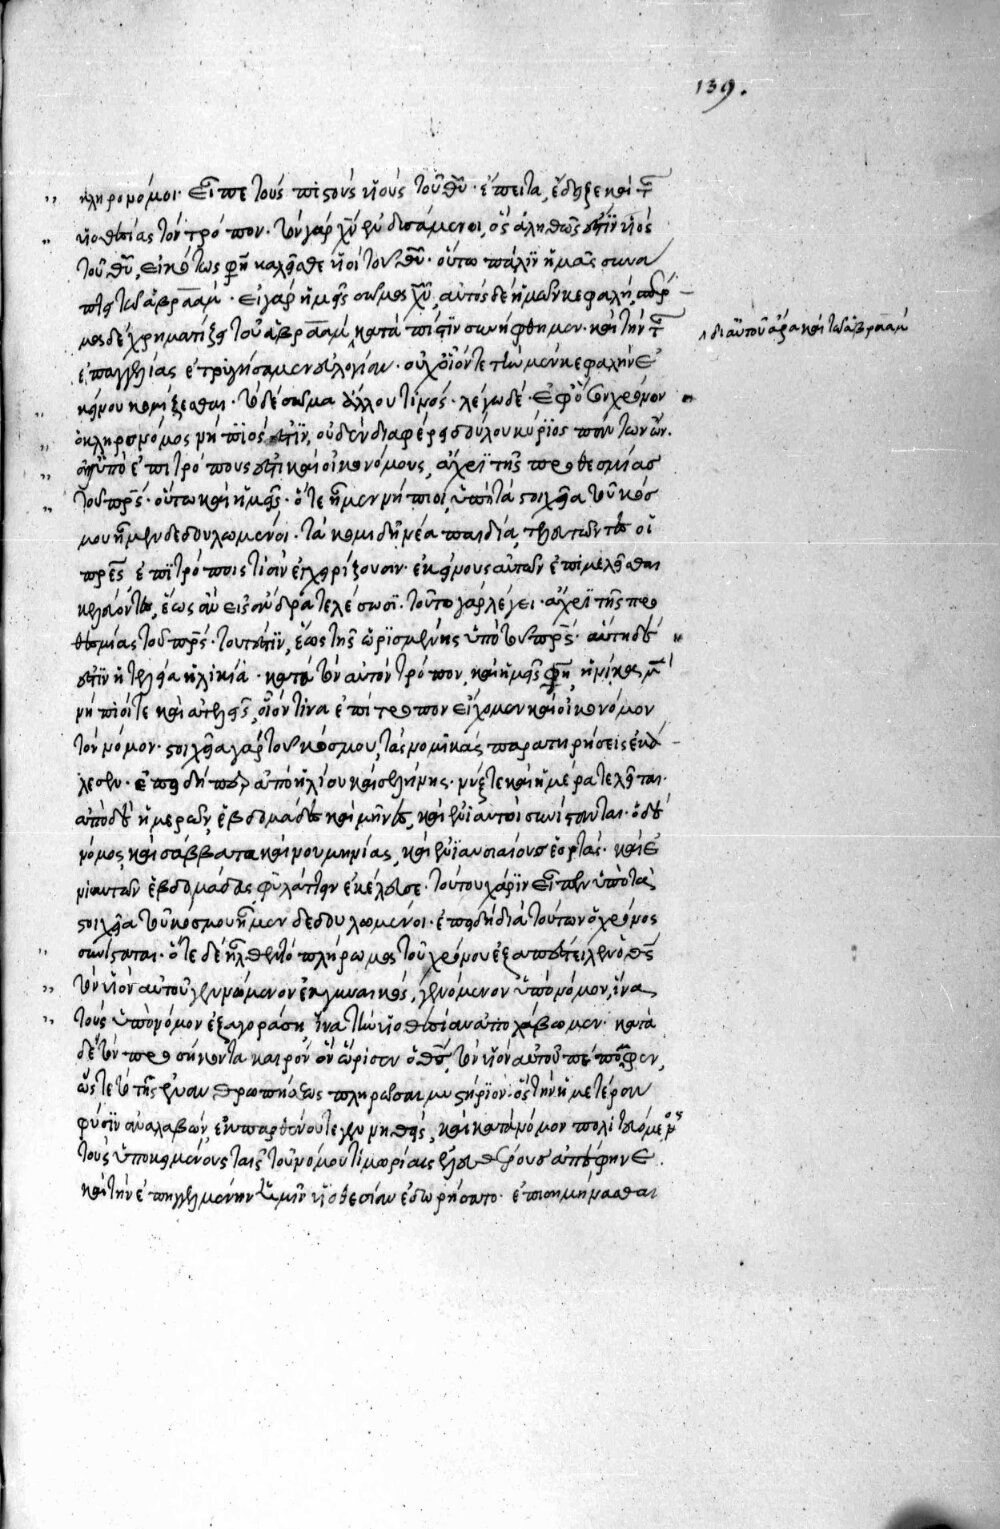 139.
κληρονόμοι. εἶπε τοὺς πιστοὺς υἱοὺς τοῦ θῦ. ἔπειτα, ἔδειξε καὶ τ
υἱοθεσίας τὸν τρόπον. τὸν γὰρ χν ἐνδυσάμενοι, ὅς ἀληθῶς ἐστὶν υἱὸς
τοῦ θῦ, εἰκότως φησὶ καλεῖσθε υἱοὶ τοῦ θῦ. οὕτω πάλιν ἡμᾶς συνά
πτει τῷ ἀβραάμ. εἰ γὰρ ἡμεῖς σῶμα χῦ, αὐτὸς δὲ ἡμῶν κεφαλή, σπέρ
μα δὲ χρηματίζει τοῦ ἀβραάμ, κατὰ τοι πίστιν συνήφθημεν. καὶ τὴν τ
λ δι αὐτοῦ ἄρα καὶ τῷ ἀβραάμ
ἐπαγγελίας ἐτρυγήσαμεν εὐλογίαν. οὐχ οἷόν τε τὴν μὲν κεφαλὴν ἐ
κείνου νομίζεσθαι. τὸ δὲ σῶμα ἄλλου τινός. λέγω δέ. ἐφ ὅσον χρόνον
ὁ κληρονόμος νήπιός ἐστιν, οὐδὲν διαφέρει δούλου κύριος πάντων ὤν.
ἀλλ ὑπὸ ἐπιτρόπους ἐστὶ καὶ οἰκονόμους, ἄχρι τῆς προθεσμίας
τοῦ πρς. οὕτω καὶ ἡμεῖς. ὅτε ἦμεν νήπιοι, ὑπὸ τὰ στοιχεῖα τοῦ κόσ
μου ἦμεν δεδουλωμένοι. τὰ κομιδῆ νέα παιδία, τελευτῶντες οἱ
πρες ἐπιτρόποις τισὶν ἐγχειρίζουσιν. ἐκείνους αὐτῶν ἐπιμελεῖσθαι
κελεύοντες, ἕως ἂν εἰς ἄνδρας τελέσωσι. τοῦτο γὰρ λέγει. ἄχρι τῆς προ
θεσμίας τοῦ πρς. τουτέστιν, ἕως τῆς ὡρισμένης ὑπὸ τοῦ πρς. αὕτη δέ
ἐστιν ἡ τελεία ἡλικία. κατὰ τὸν αὐτὸν τρόπον, καὶ ἡμεῖς φησι, ἡνίκα μὲν
νήπιοί τε καὶ ἀτελεῖς, οἷόν τινα ἐπίτροπον εἴχομεν καὶ οἰκονόμον
τὸν νόμον. στοιχεῖα γὰρ τοῦ κόσμου, τὰς νομικὰς παρατηρήσεις ἐκά
λεσεν. ἐπειδήπερ ἀπὸ ἡλίου καὶ σελήνης. νύξ τε καὶ ἡμέρα τελεῖται.
ἀπὸ δὲ ἡμερῶν, ἑβδομάδες καὶ μῆνες, καὶ ἐνιαυτοὶ συνίστανται. ὁ δὲ
νόμος, καὶ σάββατα καὶ νουμηνίας, καὶ ἐνιαυσιαίους ἑορτάς. καὶ ἐ
νιαυτῶν ἑβδομάδας φυλάττειν ἐκέλευσε. τούτου χάριν εἶπεν ὑπὸ τὰ
στοιχεῖα τοῦ κόσμου ἦμεν δεδουλωμένοι. ἐπειδὴ διὰ τούτων ὁ χρόνος
συνίσταται. ὅτε δὲ ἦλθεν τὸ πλήρωμα τοῦ χρόνου ἐξαπέστειλεν ὁ θς
τὸν υἱὸν αὐτοῦ γενόμενον ἐκ γυναικός, γενόμενον ὑπὸ νόμον, ἵνα
τοὺς ὑπὸ νόμον ἐξαγοράση, ἵνα τὴν υἱοθεσίαν ἀπολάβωμεν. κατὰ
δὲ τὸν προσήκοντα καιρὸν ὃν ὥρισεν ὁ θς, τὸν υἱὸν αὐτοῦ πέπομφεν,
ὥστε τὸ τῆς ἐνανθρωπήσεως πληρῶσαι μυστήριον. ὃς τὴν ἡμετέραν
φύσιν ἀναλαβών, ἐκ παρθένου τε γεννηθείς, καὶ κατὰ νόμον πολιτευόμενος
τοὺς ὑποκειμένους ταῖς τοῦ νόμου τιμωρίαις ἐλευθέρους ἀπέφηνε.
καὶ τὴν ἐπηγγελμένην ἡμῖν υἱοθεσίαν ἐδωρήσατο. ἐπισημήνασθαι